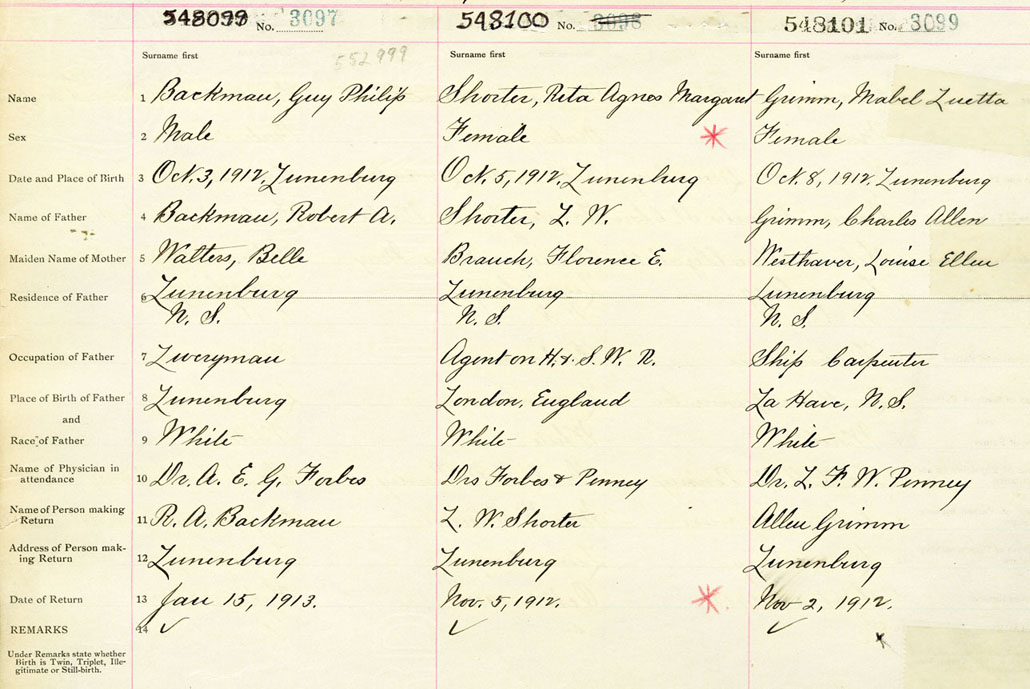 548099 No. 3097 548100 No. 3098 548101 No. 3099
Surname first 552999 Surname first Surname first
Name 1 Backman, Guy Philip Shorter, Rita Agnes Margaret Grimm, Mabel Luetta
Sex 2 Male Female Female
Date and Place of Birth 3 Oct. 3, 1912, Lunenburg Oct. 5, 1912, Lunenburg Oct. 8, 1912, Lunenburg
Name of Father 4 Backman, Robert A. Shorter, L. W. Grimm, Charles Allen
Maiden Name of Mother 5 Walters, Belle Brauch, Florence E. Westhaver, Louise Ellen
Residence of Father 6 Lunenburg Lunenburg Lunenburg
N. S. N. S. N. S.
Occupation of Father 7 Liveryman Agent on H. & S. W. R. Ship Carpenter
Place of Birth of Father 8 Lunenburg London, England La Have, N. S.
and
Race of Father 9 White White White
Name of Physician in
attendance 10 Dr. A. E. G. Forbes Drs Forbes & Penney Dr. L. F. W. Penney
Name of Person making
Return 11 R. A. Backman L. W. Shorter Allen Grimm
Address of Person mak-
ing Return 12 Lunenburg Lunenburg Lunenburg
Date of Return 13 Jan 15, 1913. Nov. 5, 1912. Nov 2, 1912.
REMARKS 14
Under Remarks state whether
Birth is Twin, Triplet, Ille-
gitimate or Still-birth.